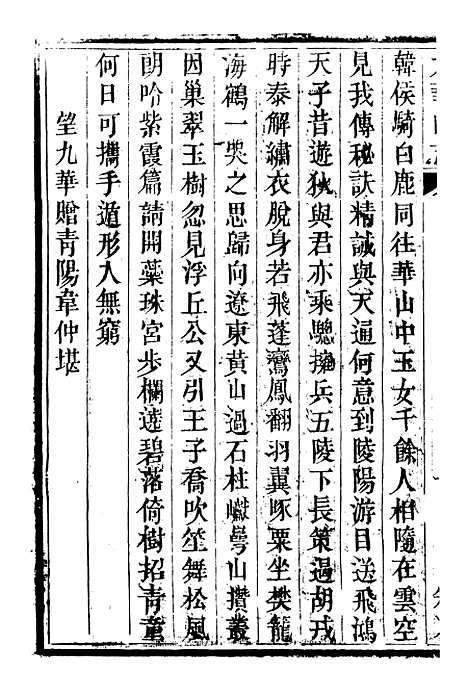 韓侯騎白鹿同往華山中玉女千餘人相隨在雲空
見我傳秘訣精誠與天通何意到陵陽游目送飛鴻
天子昔遊狄與君亦乘驄擁兵五陵下長策過胡戎
時泰解繡衣脫身若飛蓬鸞鳳翻羽翼啄粟坐樊籠
海鶴一笑之思歸向遼東黃山過石柱巘崿山攢叢
因巢翠玉樹忽見浮丘公又引王子喬吹笙舞松風
朗吟紫霞篇請開蘂珠宮步欄遶碧落倚樹招青童
何日可攜手遁形入無窮
望九華贈青陽韋仲堪